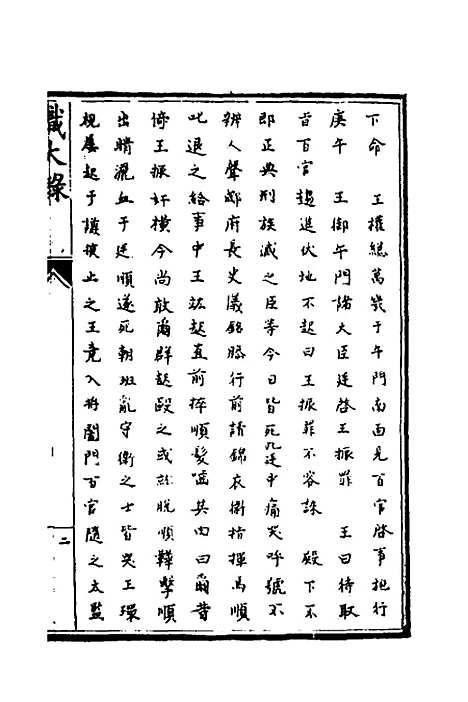 下命　王權總萬幾于午門南面見百官啓事把行
庚午　王御午門諸大臣廷啓王振罪　王曰待取
旨百官趨進伏地不起曰王振罪不容誅　殿下不
即正典刑族滅之臣等今日皆死凡廷中痛哭呼號不
辨人聲郕府長史儀銘膝行前請錦衣衛指揮馬順
叱退之給事中王竑趨直前捽順髮嚙其肉曰爾昔
倚王振奸橫今尚敢爾群起毆之或就脫順鞾擊順
出睛灑血于廷順遂死朝班亂守衛之士皆哭王環
規屢起于謙掖止之王竟入將闔門百官隨之太監
識大錄
二